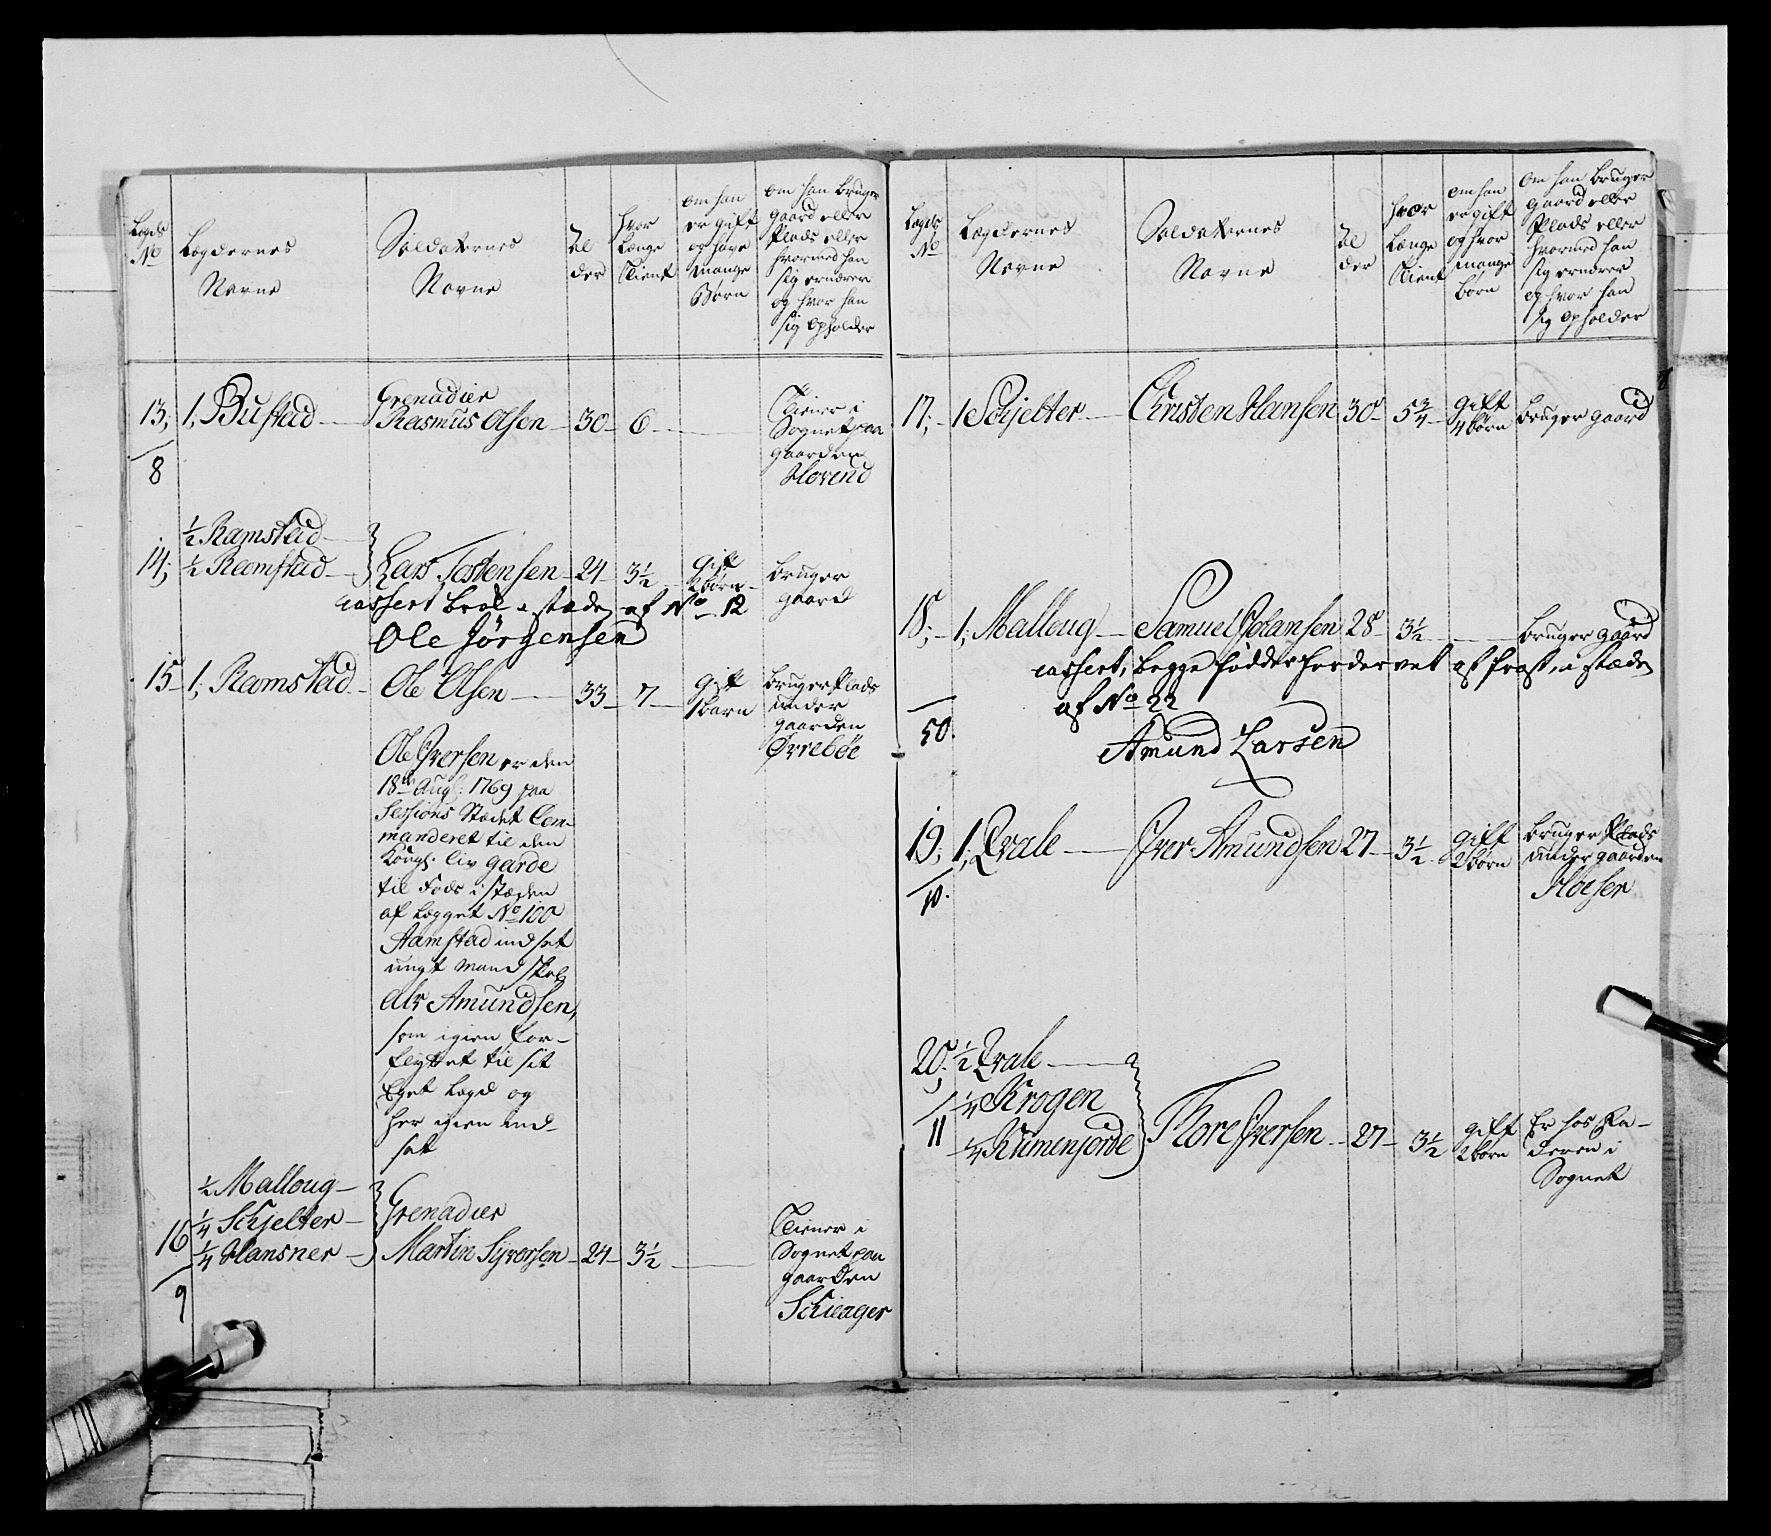 Legds No
Lægdernes Navne
Soldaternes Navne
Al der
Hvor Længe Tient
Om han er gift og hvor mange Børn
Om han bruger gaard eller Plads eller hvormed han sig ernærer og hvor han sig opholder
13; 1, Bustad — Grenadier
Rasmus Olsen — 30 — 6 —
Tiener i
Sognet paa
gaarden
Hovend
8
½ Ramstad
14; ½ Ramstad — Lars Tostensen — 24 — 3½ gift
2 børn bruger
gaard
cassert i stæden af No 12
Ole Jörgensen
15 — 1, Ramstad — Ole Olsen — 33 — 7 — gift
1 barn
bruger Plads
under
gaarden
Øvrebøe
Ole Iversen er den
18de Aug: 1769 paa
Sessions Stædet Com-
manderet til den
Kongl. liv garde
til Fods i stæden
af Legget No 100
Aamstad indsat
ungt Mandskab
Alv Amundsen,
som igien for-
flyttet til sit
Eget Lægd og
her igien ind-
sat
½ Malloug —
¼ Schjelter — Grenadier
16 ¼ Hansner — Martin Syversen — 24 — 3½ —
Tiener i
Sognet paa
gaarden
Schieager
9
Legds No
Lægdernes Navne
Soldaternes Navne
Al der
Hvor Længe Tient
Om han er gift og hvor mange Børn
Om han bruger gaard eller Plads eller hvormed han sig ernærer og hvor han sig opholder
17; 1 Schjelter — Christen Hansen 30 — 5¾ — gift
4 børn bruger gaard
18; 1; Malloug — Samuel Johansen 28 — 3½ — bruger gaard
cassert, begge fødder fordervet af frost, i stæden
af No 22
50.
Amund Larsen
19; 1; Qvale — Iver Amundsen 27 — 3½ gift
2 børn
bruger Plads
under gaarden
Hoesen
10.
20; ½ Qvale —
¼ Krogen
11 ¼ Kummenjorde Thore Iversen — 27 — 3½ gift
2 børn
Er hos Fa-
deren i
Sognet